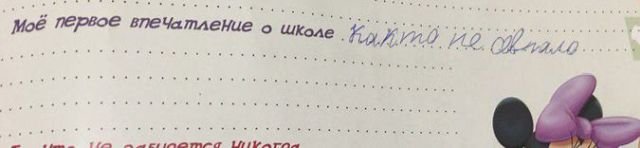 Моё первое впечатление о школе както не овпало
что не забудется никогда